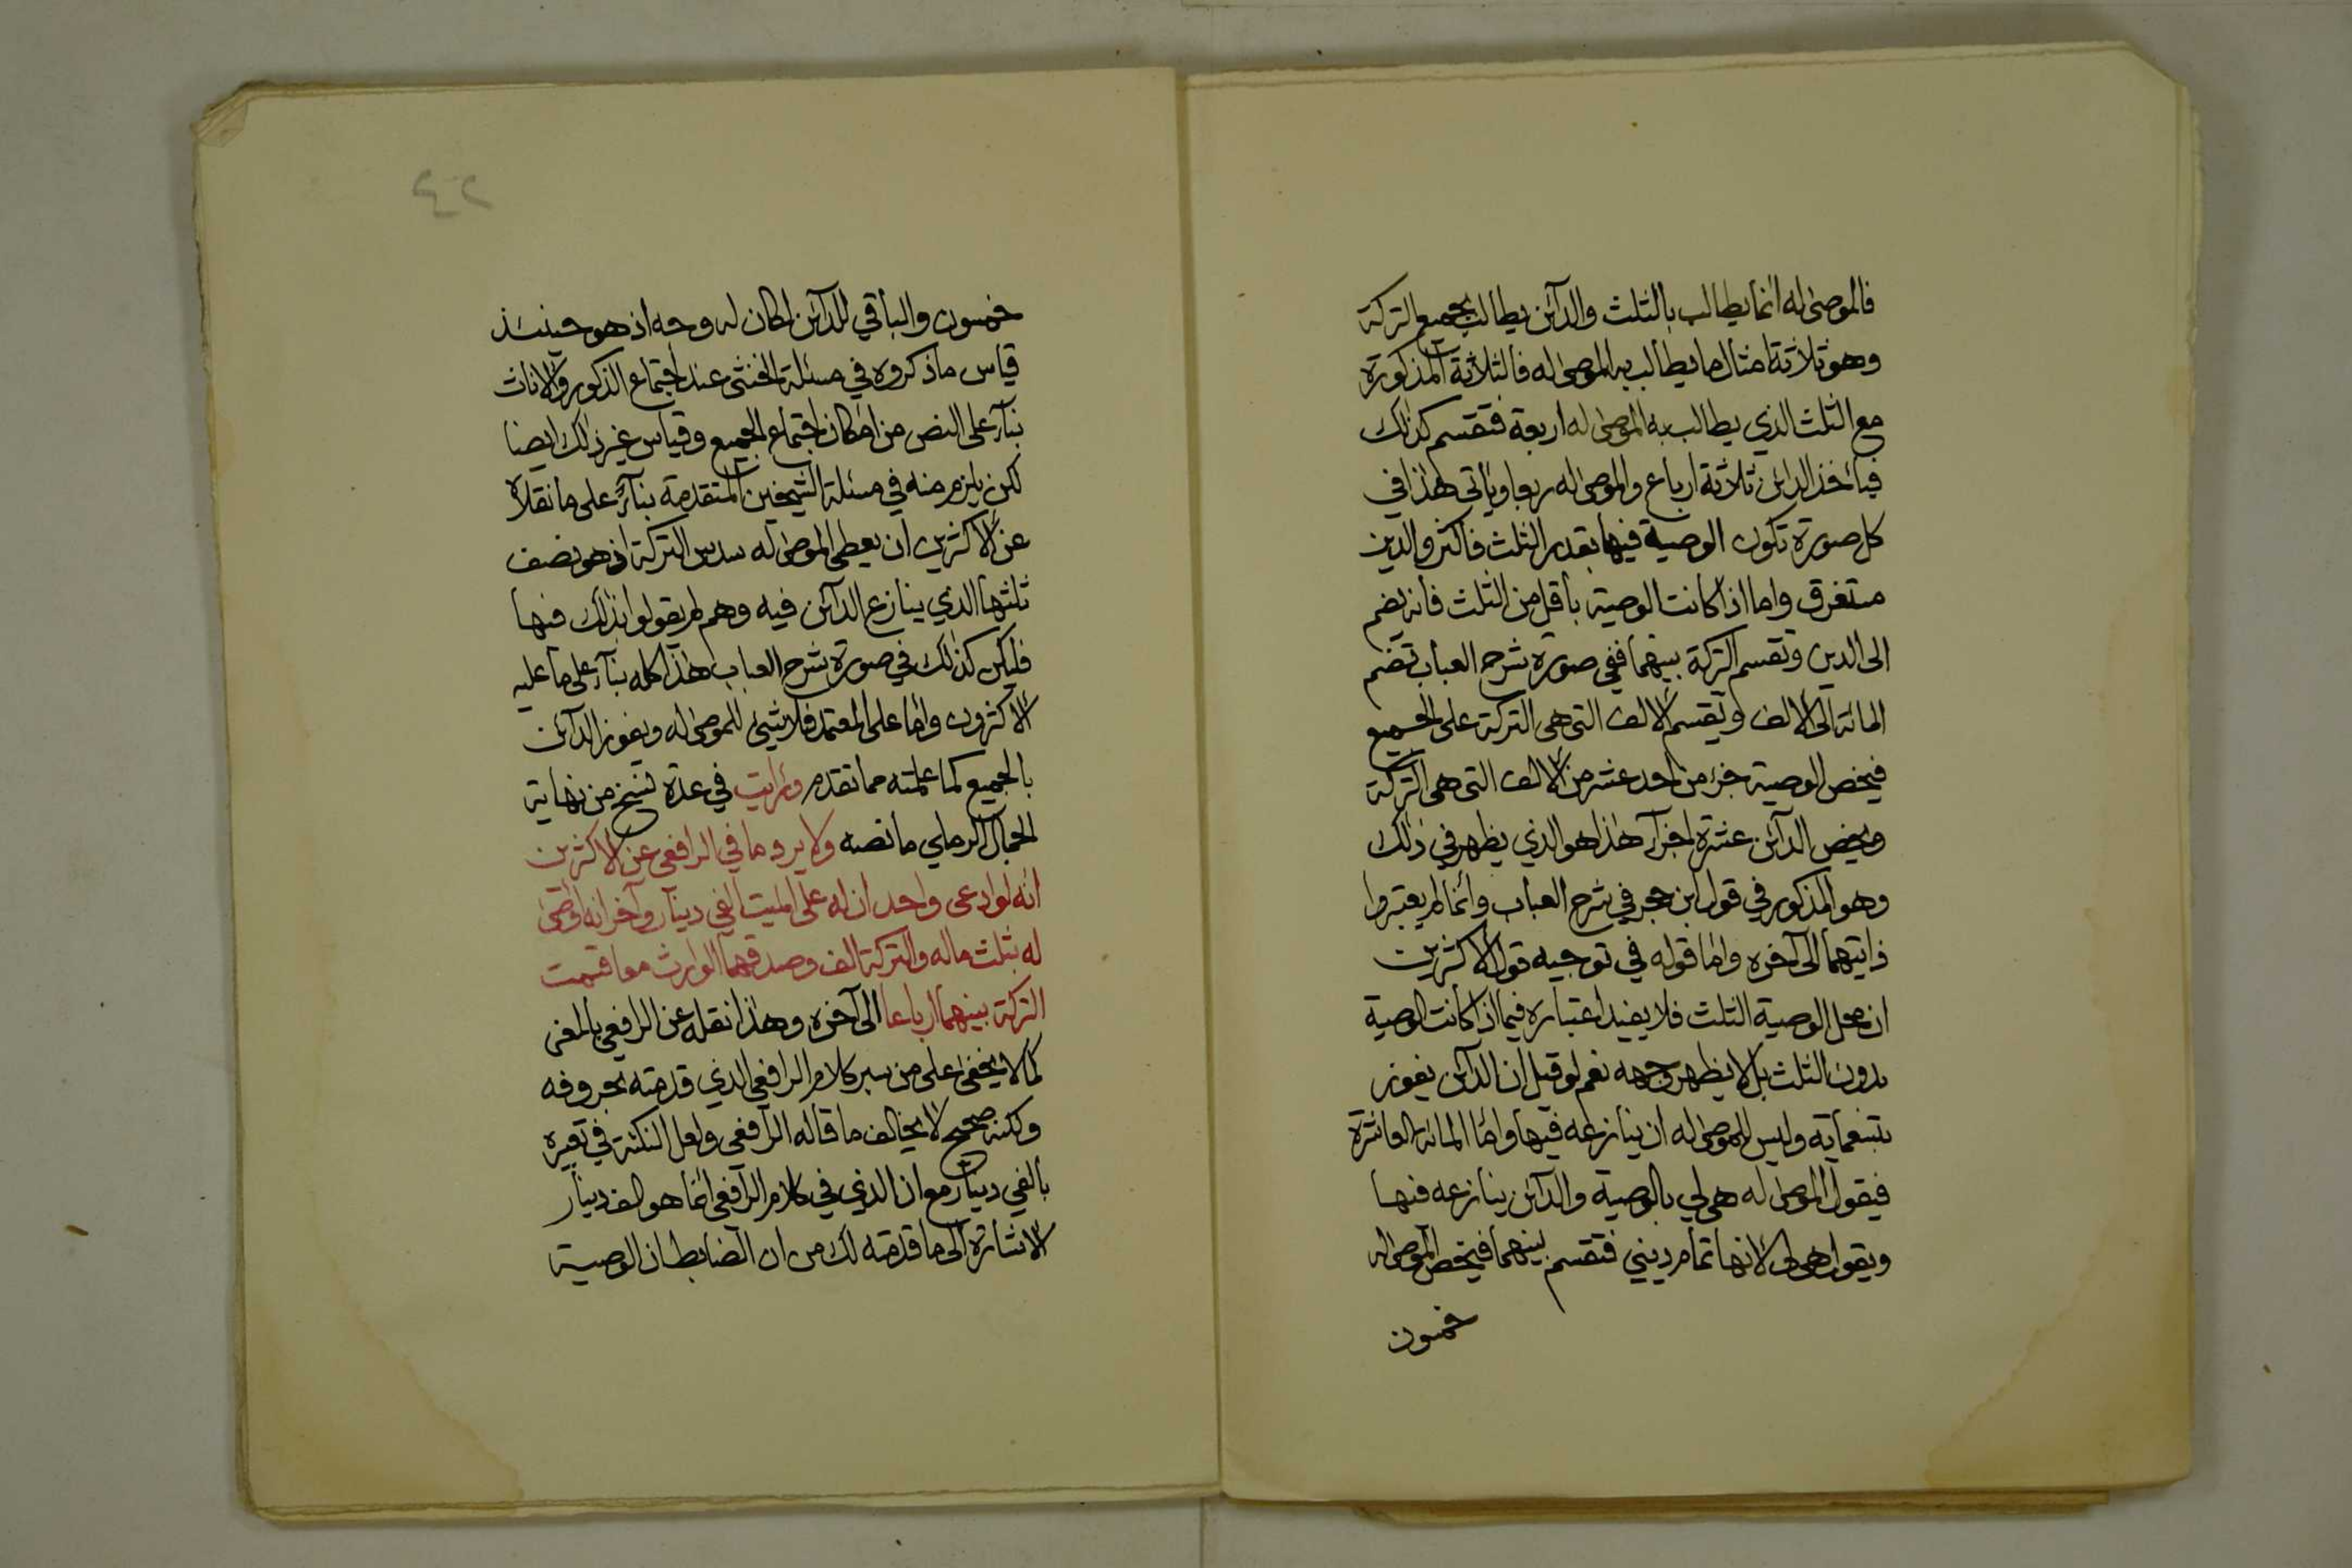 فالموصى له انما يطالب بالثلث والدآئن يطالب بجميع التركة
وهو ثلاثة امثال ما يطالب به الموصى له فالثلاثة المذكورة
مع الثلث الذي يطالب به الموصى له اربعة فتقسم كذلك
فيأخذ الدائن ثلاثة ارباع والموصى له ربعا ويأتي هذا في
كل صورة تكون الوصية فيها بقدر الثلث فاكثر والدين
مستغرق واما اذا كانت الوصية بأقل من الثلث فانه يضم
الى الدين وتقسم التركة بينهما ففي صورة شرح العباب تضم
المائة الى الالف وتقسم الالف التي هي التركة على الجميع
فيخص الوصية جزء من احد عشر من الالف التي هي التركة
ويخص الدآئن عشرة اجزآء هذا هو الذي يظهر في ذلك
وهو المذكور في قول ابن حجر في شرح العباب وانما لم يعتبروا
ذاتيتهما الى آخره واما قوله في توجيه قول الاكثرين
ان محل الوصية الثلث فلا يفيد اعتباره فيما اذا كانت الوصية
بدون الثلث بل لا يظهر وجهه نعم لو قيل ان الدآئن يفوز
بتسعماية وليس للموصى له ان ينازعه فيها واما المائة العاشرة
فيقول الموصى له هي لي بالوصية والدآئن ينازعه فيها
ويقول هي لي لانها تمام ديني فتقسم بينهما فيخص الموصى له
خمسون
٤٢
خمسون والباقي للدآئن لكان له وجه اذ هو حينئذ
قياس ما ذكروه في مسئلة الخنثى عند اجتماع الذكور والاناث
بنآء على النص من امكان اجتماع الجميع وقياس غير ذلك ايضا
لكن يلزم منه في مسئلة الشيخين المتقدمة بنآء على ما نقلاه
عن الاكثرين ان يعطى الموصى له سدس التركة اذ هو نصف
ثلثها الذي ينازع الدآئن فيه وهم لم يقولوا بذلك فيها
فليكن كذلك في صورة شرح العباب هذا كله بنآء على ما عليه
الاكثرون واما على المعتمد فلا شيئ للموصى له ويفوز الدآئن
بالجميع كما علمته مما تقدم ورأيت في عدة نسخ من نهاية
الجمال الرملي ما نصه ولا يرد ما في الرافعي عن الاكثرين
انه لو ادعى واحد ان له على الميت الفي دينار وآخر انه اوصى
له بثلث ماله والتركة الف وصدقهما الوارث معا قسمت
التركة بينهما ارباعا الى آخره وهذا نقله عن الرافعي بالمعنى
كما لا يخفى على من سبر كلام الرافعي الذي قدمته بحروفه
ولكنه صحيح لا يخالف ما قاله الرافعي ولعل النكتة في تعبيره
بالفي دينار مع ان الذي في كلام الرافعي انما هو الف دينار
الاشارة الى ما قدمته لك من ان الضابط ان الوصية